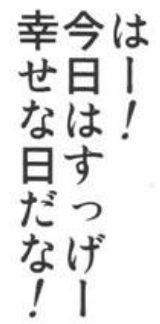 はー！
今日はすっげー
幸せな日だな！